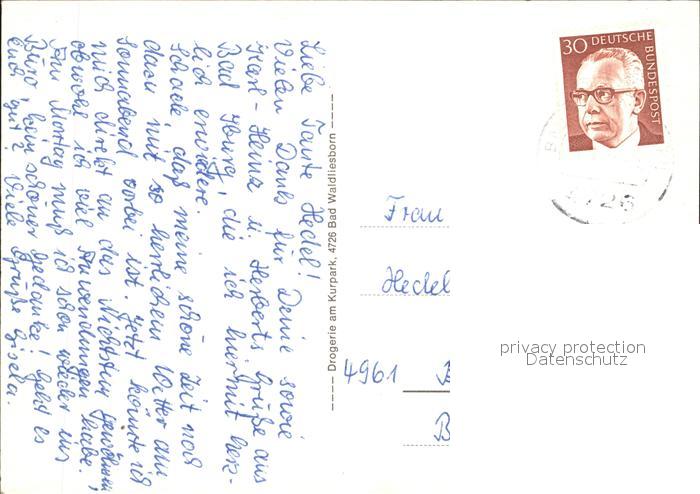 Liebe Tante Hedel!
Vielen Dank für Deine sowie
Karl-Heinz u. Herberts Grüße aus
Bad Iburg, die ich hiermit herz-
lich erwidere.
Schade, daß meine schöne Zeit noch
dazu mit so herrlichem Wetter am
Sonnabend vorbei ist. Jetzt könnte ich
mich direkt an das Nichtstun gewöhnen,
obwohl ich viel Anwendungen habe.
Am Montag muß ich schon wieder ins
Büro, kein schöner Gedanke! Geht es
euch gut? Viele Grüße Gisela.
---- Drogerie am Kurpark, 4726 Bad Waldliesborn ----
30 DEUTSCHE
BUNDESPOST
4726
Frau
Hedel
4961 B
B
privacy protection
Datenschutz